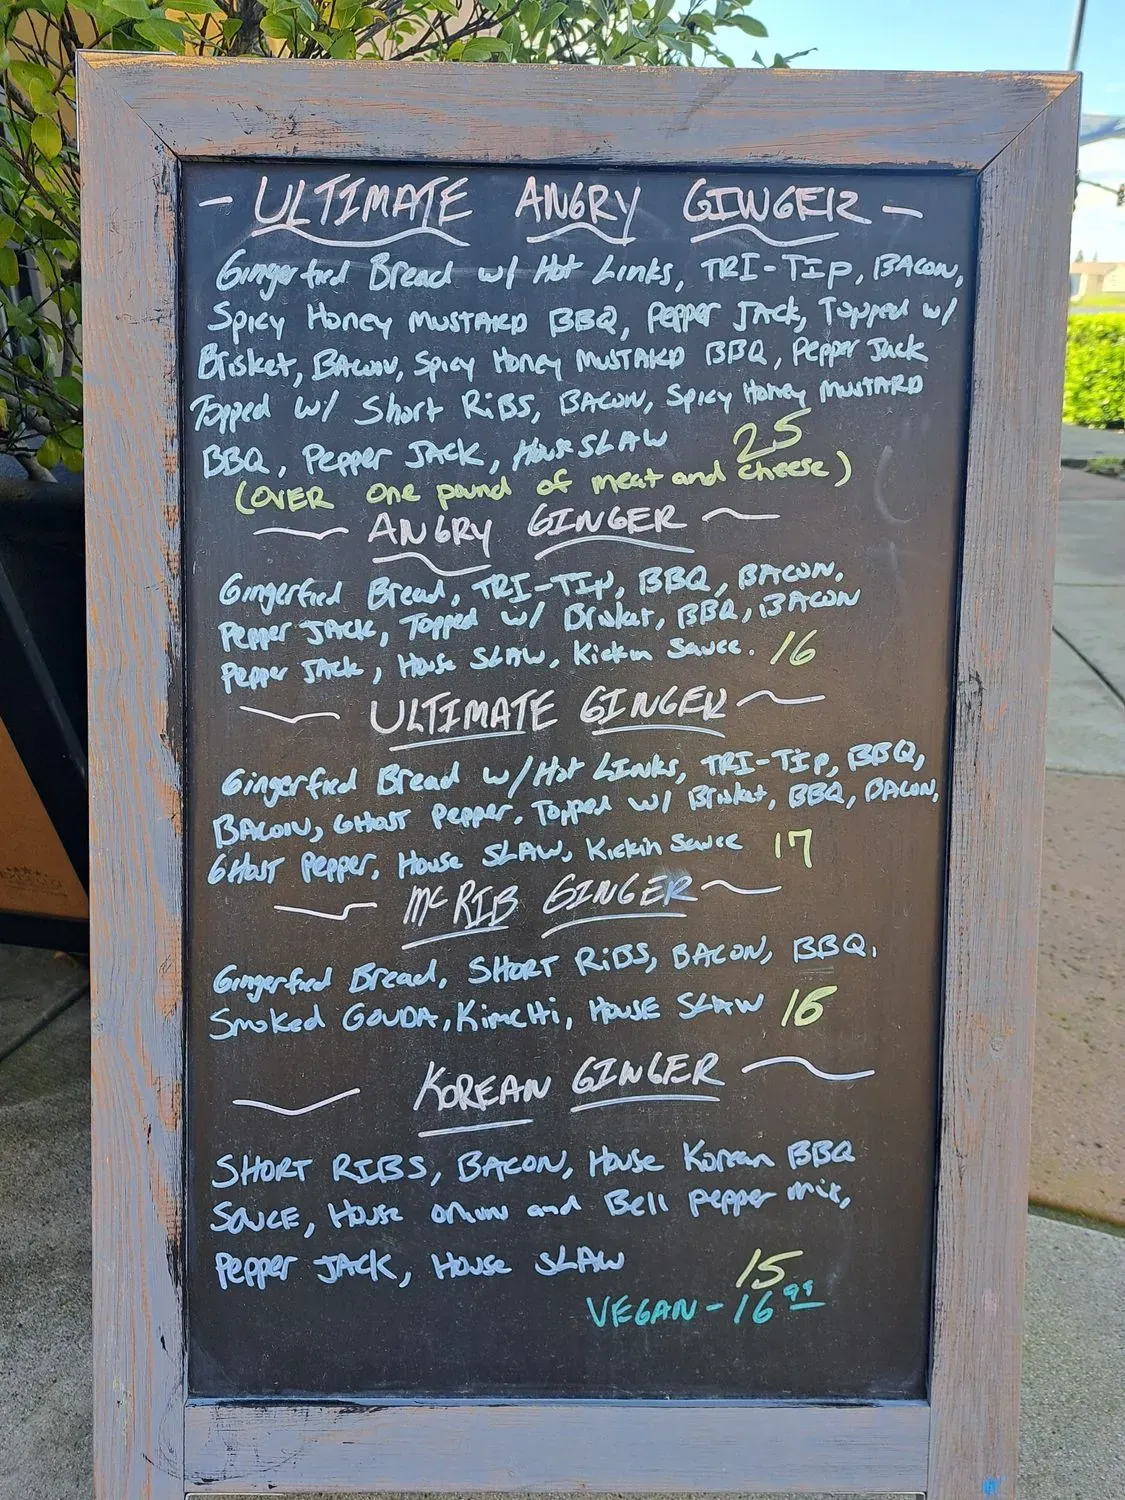 - ULTIMATE ANGRY GINGER -
Gingerfied Bread w/ Hot Links, TRI-TIP, BACON,
Spicy Honey MUSTARD BBQ, Pepper JACK, Topped w/
Brisket, BACON, Spicy Honey MUSTARD BBQ, Pepper Jack
Topped w/ Short RiBS, BACON, Spicy Honey MUSTARD
BBQ, Pepper JACK, House SLAW 25
(OVER One pound of meat and cheese)
ANGRY GINGER
Gingerfied Bread, TRI-TIP, BBQ, BACON,
Pepper JACK, Topped w/ Brisket, BBQ, BACON
Pepper JACK, House SLAW, Kickin Sauce. 16
ULTIMATE GINGER
Gingerfied Bread w/ Hot LINKS, TRI-TIP, BBQ,
BACON, GHOST Pepper. Topped w/ Brisket, BBQ, BACON,
GHOST Pepper, House SLAW, Kickin Sauce 17
Mc RIB GINGER
Gingerfied Bread, SHORT RiBS, BACON, BBQ,
Smoked GOUDA, KimcHi, HOUSE SLAW 16
KOREAN GINGER
SHORT RIBS, BACON, House Korean BBQ
SAUCE, House onion and Bell pepper mix,
Pepper JACK, House SLAW
15
VEGAN - 16.99